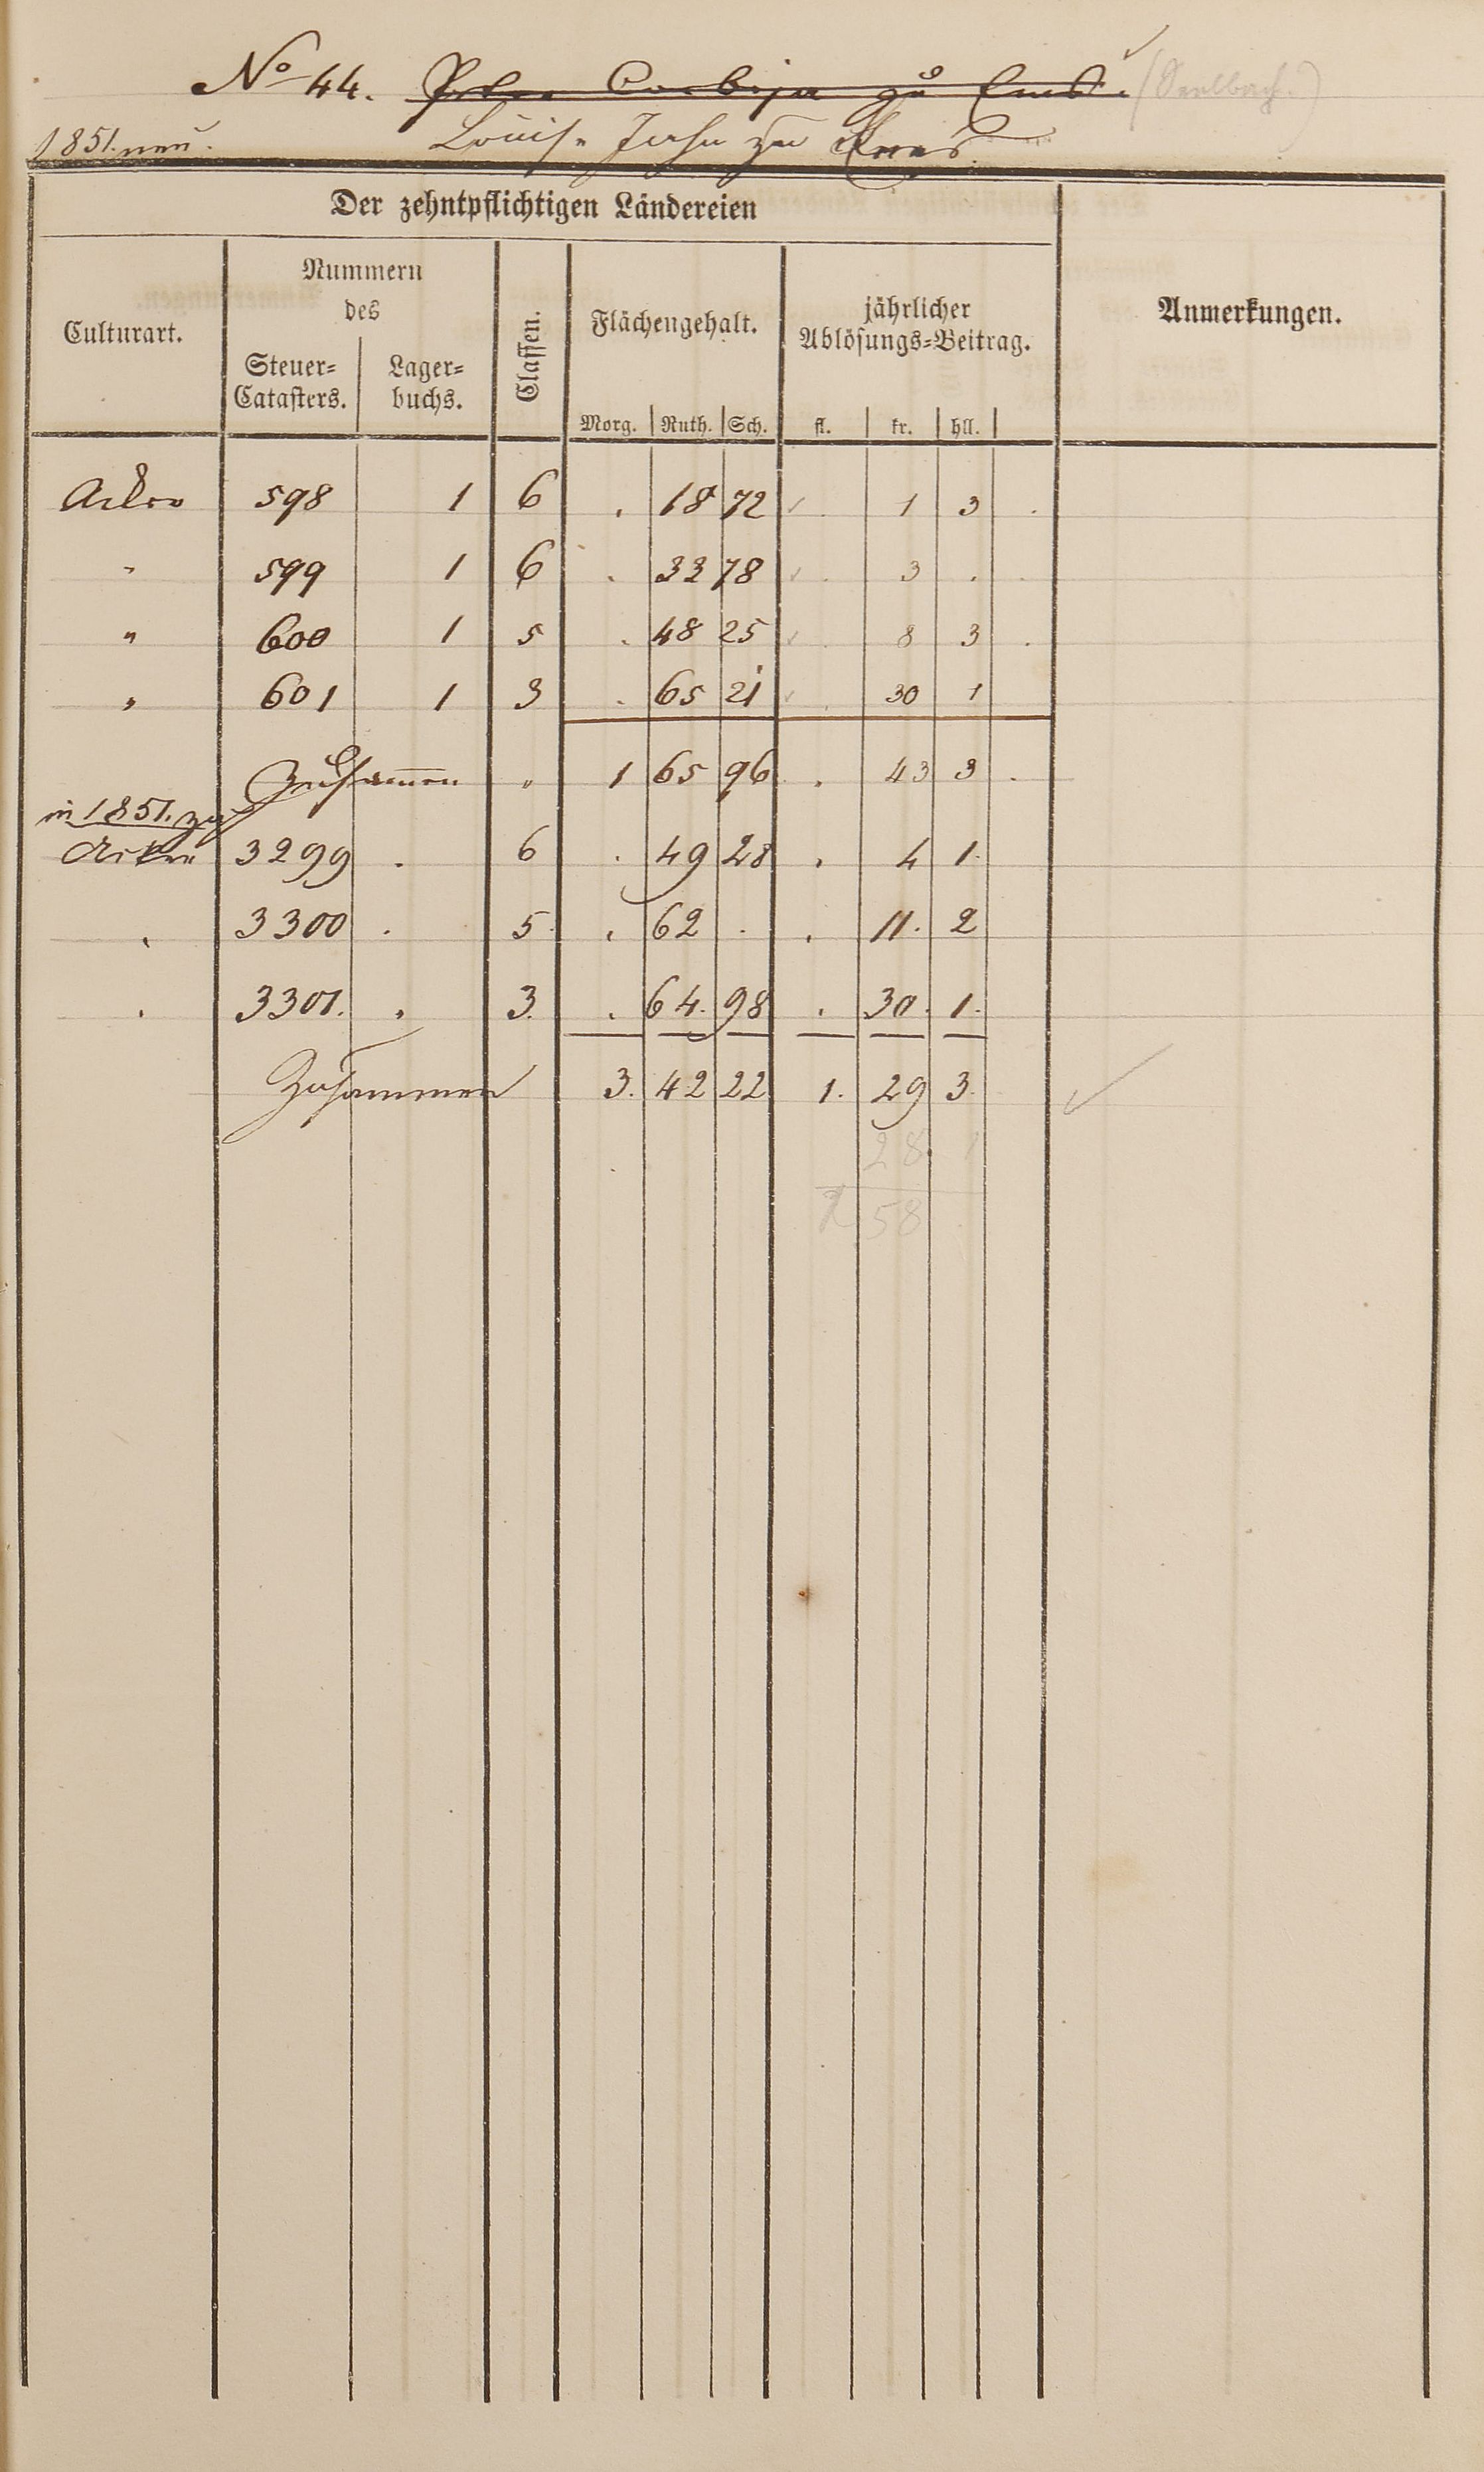 No 44. Peter Corbejer zu Ems. (Seelbach.)
1851. neu. Louise Jahn zu Ems.
Der zehntpflichtigen Ländereien
Culturart. Nummern des Steuer=Catasters. Lager=buchs. Classen. Flächengehalt. Morg. Ruth. Sch. jährlicher Ablösungs=Beitrag. fl. kr. hll. Anmerkungen.
Acker 598 1 6 . 18 72 . 1 3 .
" 599 1 6 . 33 78 . 3 . .
" 600 1 5 . 48 25 . 8 3 .
" 601 1 3 . 65 21 . 30 1
Zusammen " 1 65 96 . 43 3 .
in 1851. zu
Acker 3299 . 6 . 49 28 . 4 1.
. 3300 . 5. . 62 . . 11. 2
. 3301. . 3. . 64. 98 . 30. 1.
Zusammen 3. 42 22 1. 29 3.
28. 1
58